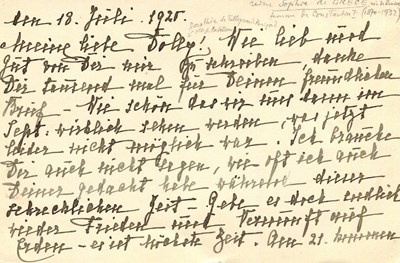 den 18. Juli, 1920
reine Sophie de GRECE
femme de Constantin I (1870-1932)
Meine liebe Dolly, Wie lieb und
gut von Dir mir zu schreiben, danke
Dir tausend mal für Deinen freundlichen
Brief - Wie schön das wir uns dann im
Sept: wirklich sehen werden, was jetzt
leider nicht möglich war. Ich brauche
Dir auch nicht sagen, wie oft ich auch
Deiner gedacht habe während dieser
schrecklichen Zeit - Gebe es doch endlich
wieder Frieden und Vernunft auf
Erden - es ist höchste Zeit. Am 21. kommen